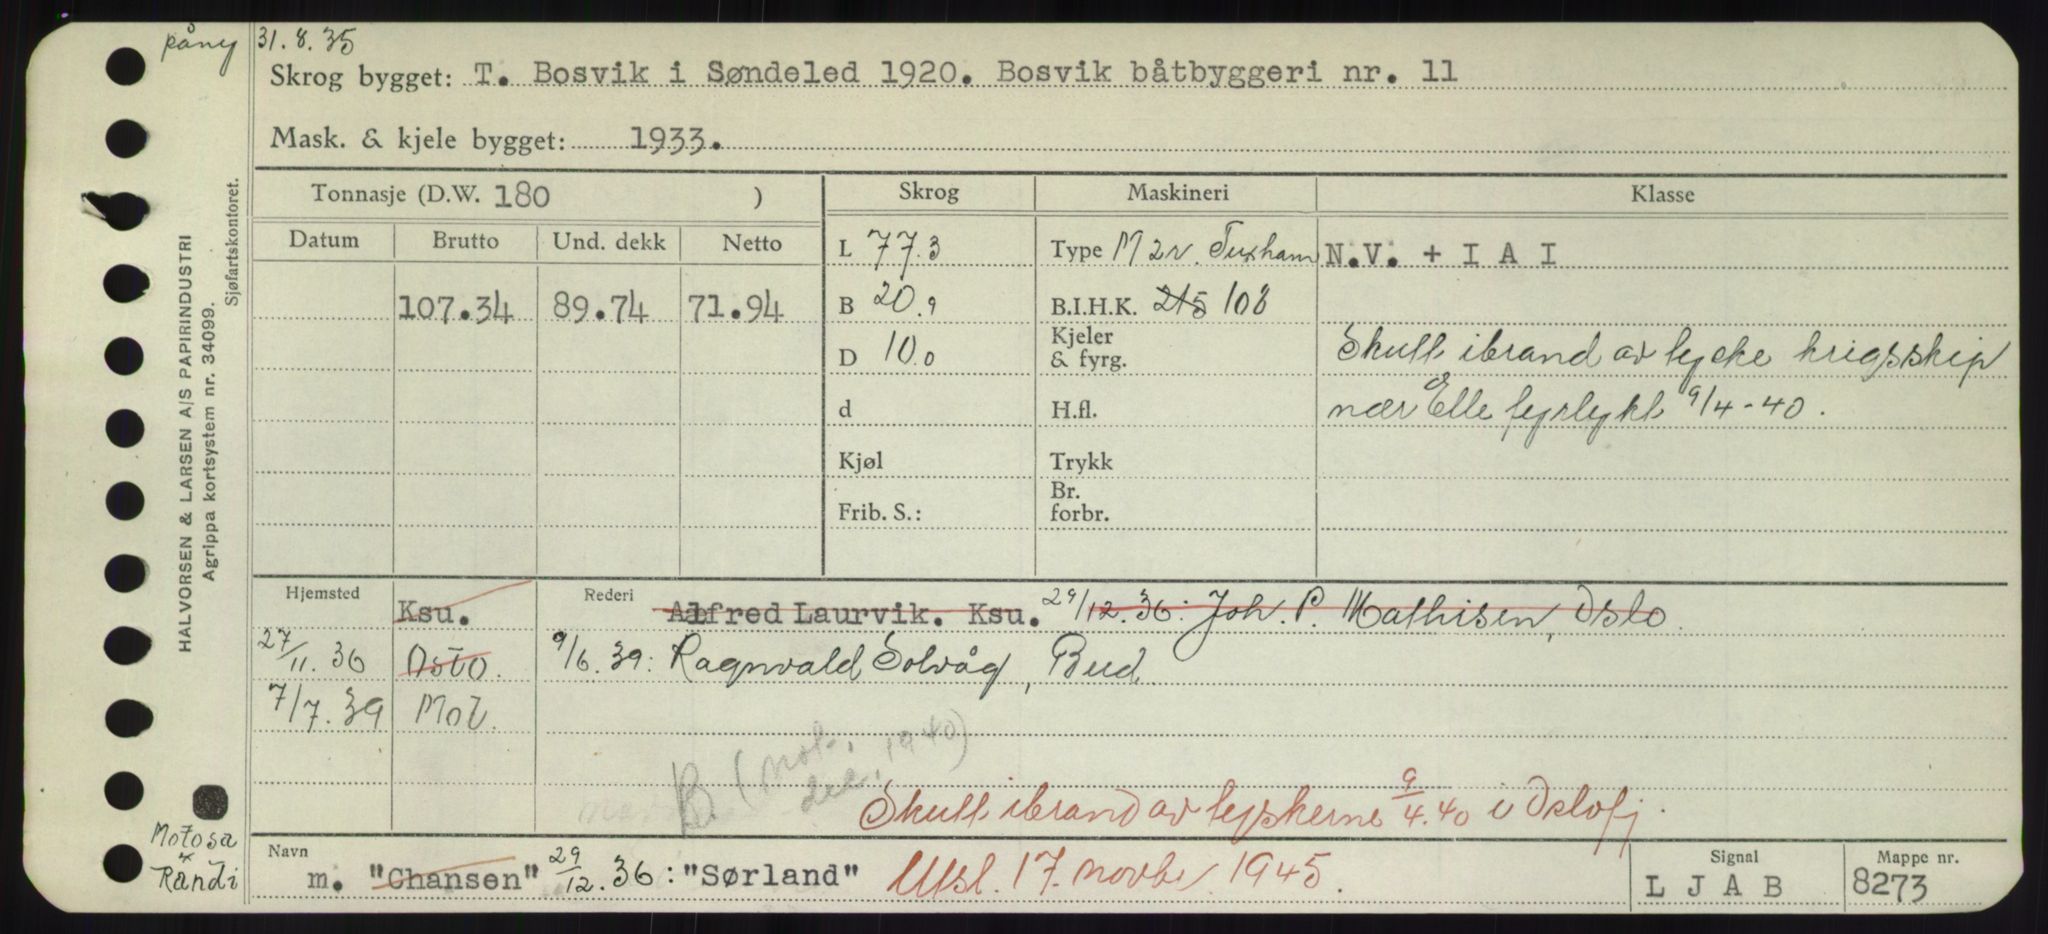 påny 31.8.35
Skrog bygget: T. Bosvik i Søndeled 1920. Bosvik båtbyggeri nr. 11
Mask. & kjele bygget: 1933.
Tonnasje (D.W. 180 ) Skrog Maskineri Klasse
Datum Brutto Und. dekk Netto L 77.3 Type M 2v. Tuxham N.V. + I A I
107.34 89.74 71.94 B 20.9 B.I.H.K. 215 108
D 10.0 Kjeler & fyrg. Skutt ibrand av tyske krigsskip
d H.fl. nær Elle fyrlykt 9/4-40.
Kjøl Trykk
Frib. S.: Br. forbr.
Hjemsted Ksu. Rederi Alfred Laurvik. Ksu. 29/12.36: Joh. P. Mathisen, Oslo.
27/11.36 Oslo. 9/6.39: Ragnvald Solvåg, Bud
7/7.39 Mol.
B (not. des. 1940)
Skutt ibrand av tyskerne 9/4.40 i Oslofj.
Navn m. "Chansen" 29/12.36: "Sørland" Utsl. 17. novbr. 1945. Signal L J A B Mappe nr. 8273
HALVORSEN & LARSEN A/S PAPIRINDUSTRI
Agrippa kortsystem nr. 34099.
Sjøfartskontoret.
Motosa
x
Randi